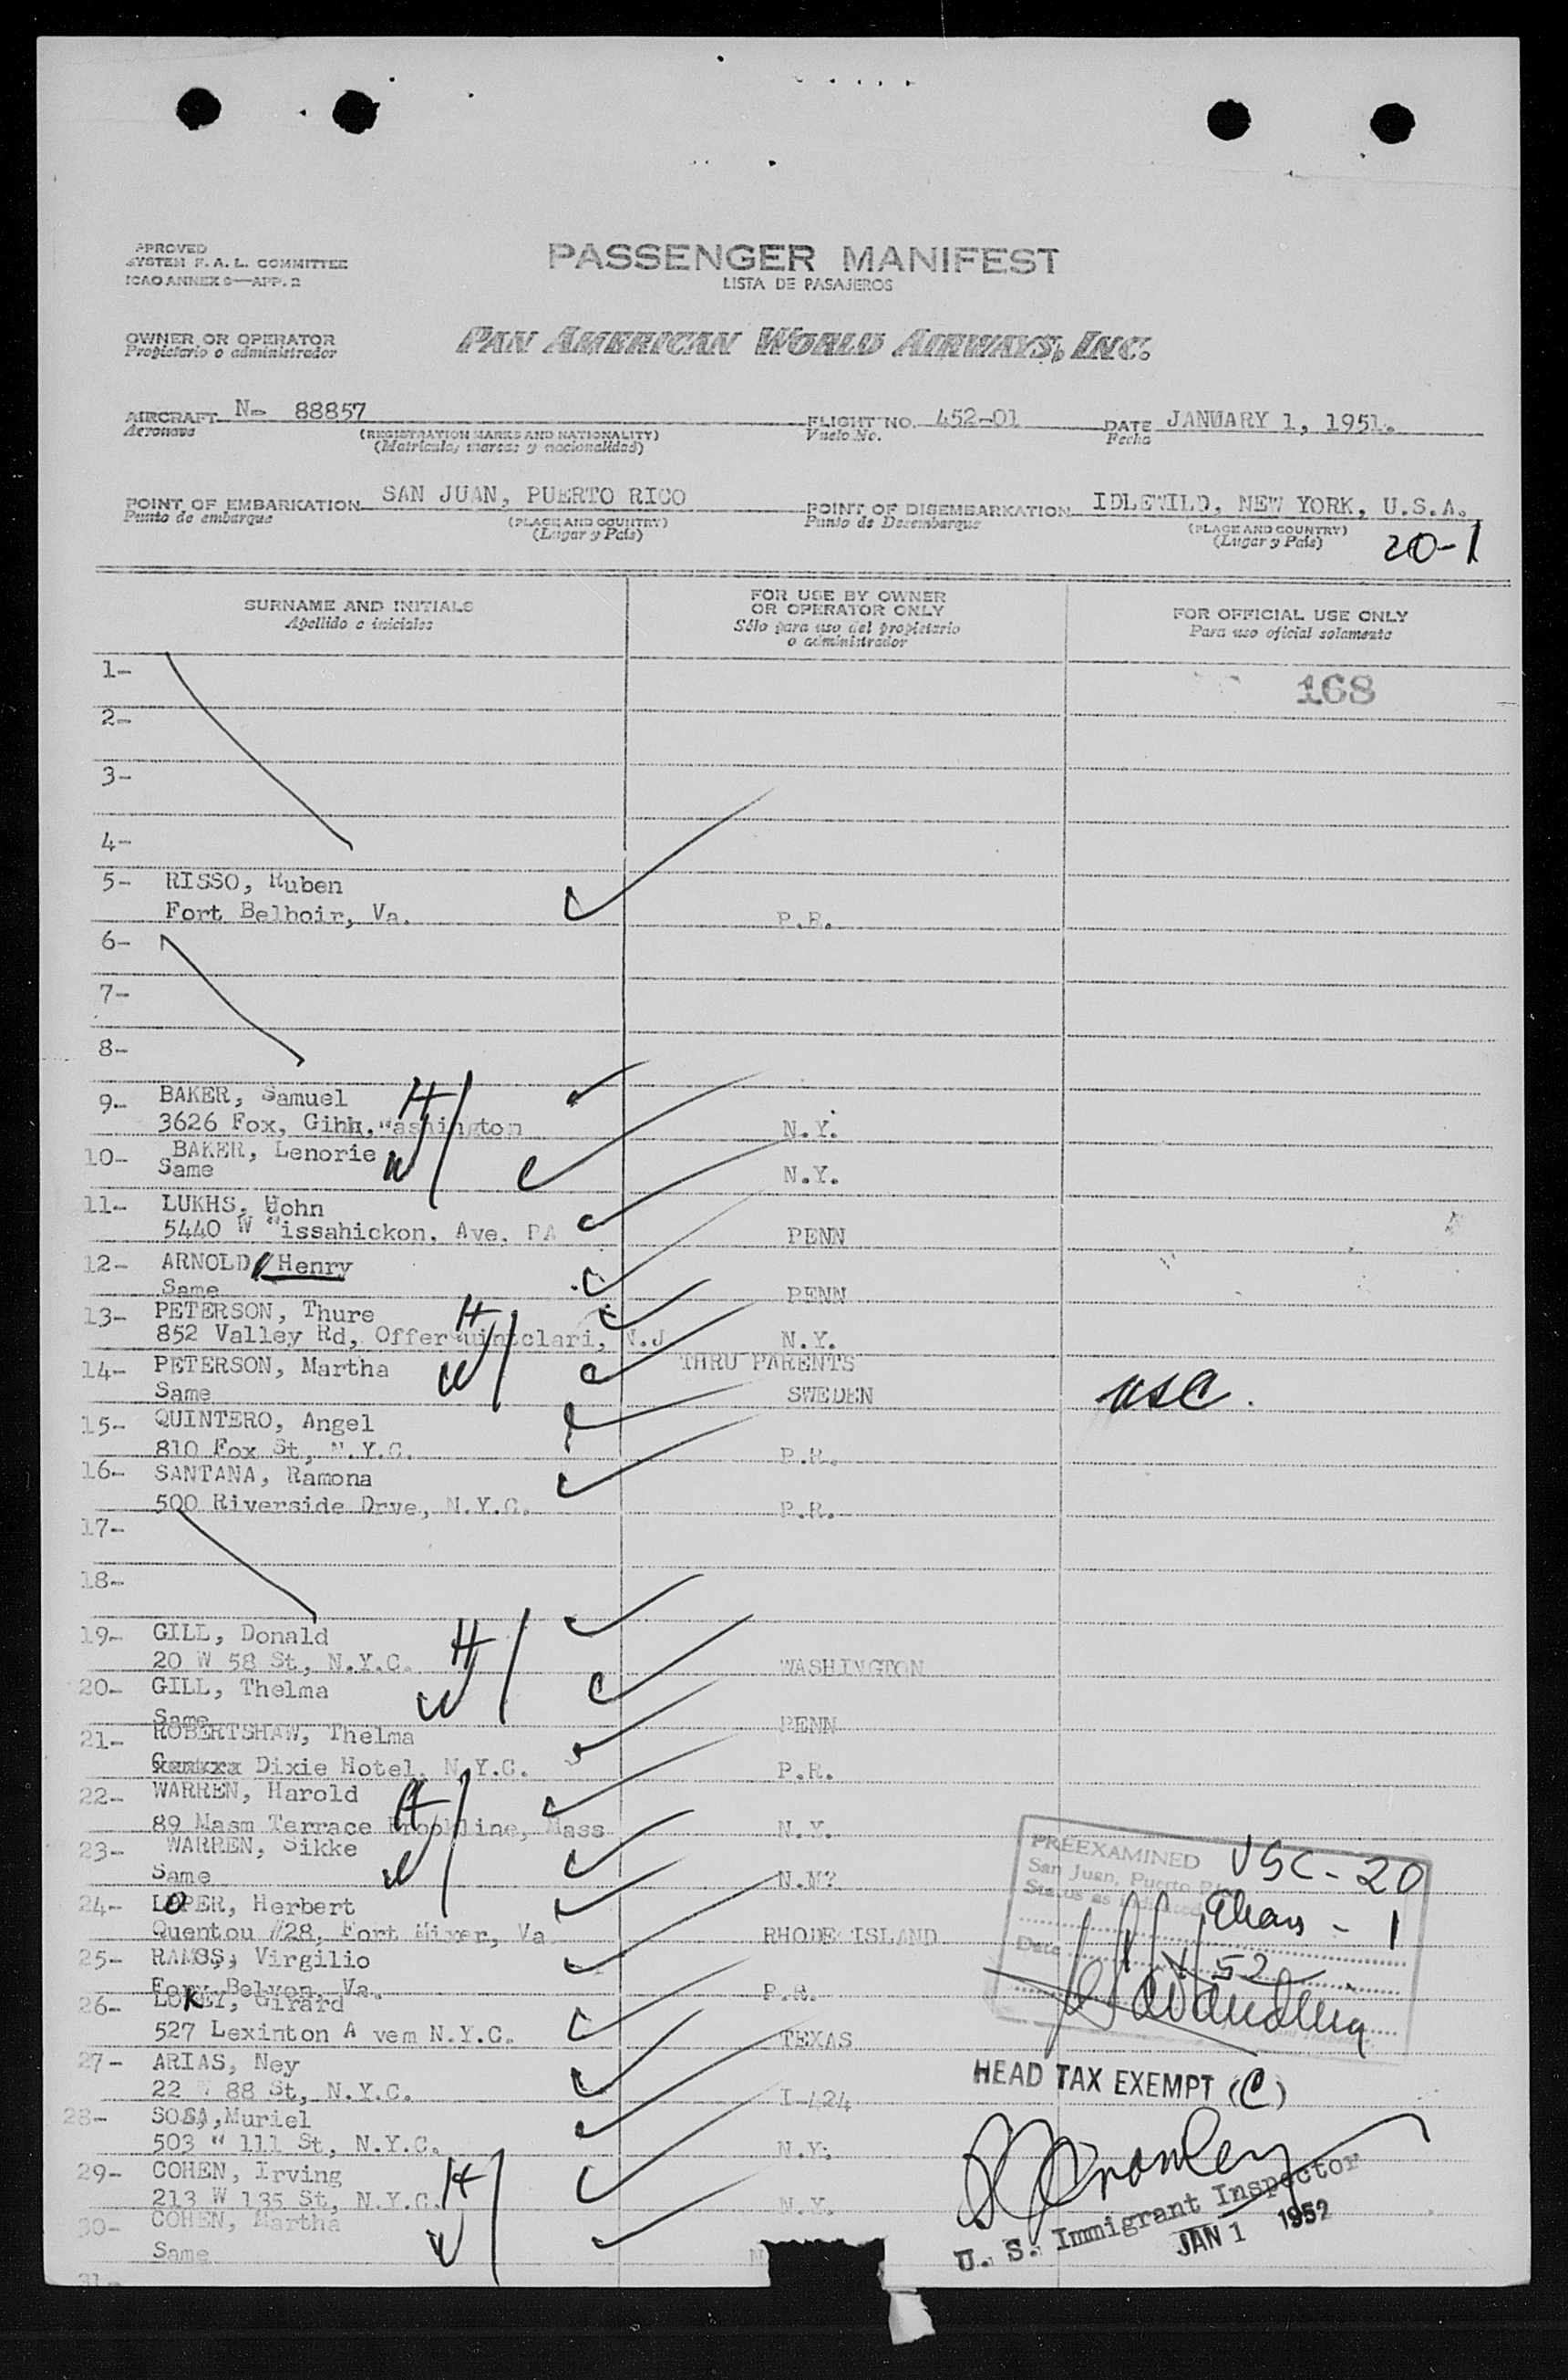 APPROVED
SYSTEM F. A. L. COMMITTEE
ICAO ANNEX 9—APP. 2
PASSENGER MANIFEST
LISTA DE PASAJEROS
OWNER OR OPERATOR
Propietario o administrador
PAN AMERICAN WORLD AIRWAYS, INC.
AIRCRAFT N- 88857
Aeronave
(REGISTRATION MARKS AND NATIONALITY)
(Matricula, marcas y nacionalidad)
FLIGHT NO. 452-01
Vuelo No.
DATE JANUARY 1, 1951.
Fecha
POINT OF EMBARKATION SAN JUAN, PUERTO RICO
Punto de embarque
(PLACE AND COUNTRY)
(Lugar y País)
POINT OF DISEMBARKATION IDLEWILD, NEW YORK, U.S.A.
Punto de Desembarque
(PLACE AND COUNTRY)
(Lugar y País)
20-1
SURNAME AND INITIALS
Apellido e iniciales
FOR USE BY OWNER
OR OPERATOR ONLY
Sólo para uso del propietario
o administrador
FOR OFFICIAL USE ONLY
Para uso oficial solamente
1-
168
2-
3-
4-
5- RISSO, Ruben
Fort Belhoir, Va. P.R.
6-
7-
8-
9- BAKER, Samuel H
3626 Fox, Gihh, Washington N.Y.
10- BAKER, Lenorie W
Same N.Y.
11- LUKHS, Hohn
5440 W Wissahickon, Ave, PA PENN
12- ARNOLD, Henry
Same PENN
13- PETERSON, Thure H
852 Valley Rd, N.J N.Y.
14- PETERSON, Martha W THRU PARENTS
Same SWEDEN USC.
15- QUINTERO, Angel
810 Fox St, N.Y.C. P.R.
16- SANTANA, Ramona
500 Riverside Drve, N.Y.C. P.R.
17-
18-
19- GILL, Donald H
20 W 58 St, N.Y.C. WASHINGTON
20- GILL, Thelma W
Same PENN
21- ROBERTSHAW, Thelma
Dixie Hotel, N.Y.C. P.R.
22- WARREN, Harold H
89 Masm Terrace Brookline, Mass N.Y.
23- WARREN, Sikke W
Same N.Y?
24- LOPER, Herbert
Quentou #28, Fort Va RHODE ISLAND
25- RAMOS, Virgilio
Va. P.R.
26- LOKEY, Girard
527 Lexinton A vem N.Y.C. TEXAS
27- ARIAS, Ney
22 W 88 St, N.Y.C. I-424
28- SOSA, Muriel
503 W 111 St, N.Y.C. N.Y.
29- COHEN, Irving H
213 W 135 St, N.Y.C. N.Y.
30- COHEN, Martha W
Same N
31-
PREEXAMINED
San Juan, Puerto Rico
Status as indicated
Date
USC - 20
Eleas - 1
1/1/52
HEAD TAX EXEMPT (C)
U. S. Immigrant Inspector
JAN 1 1952